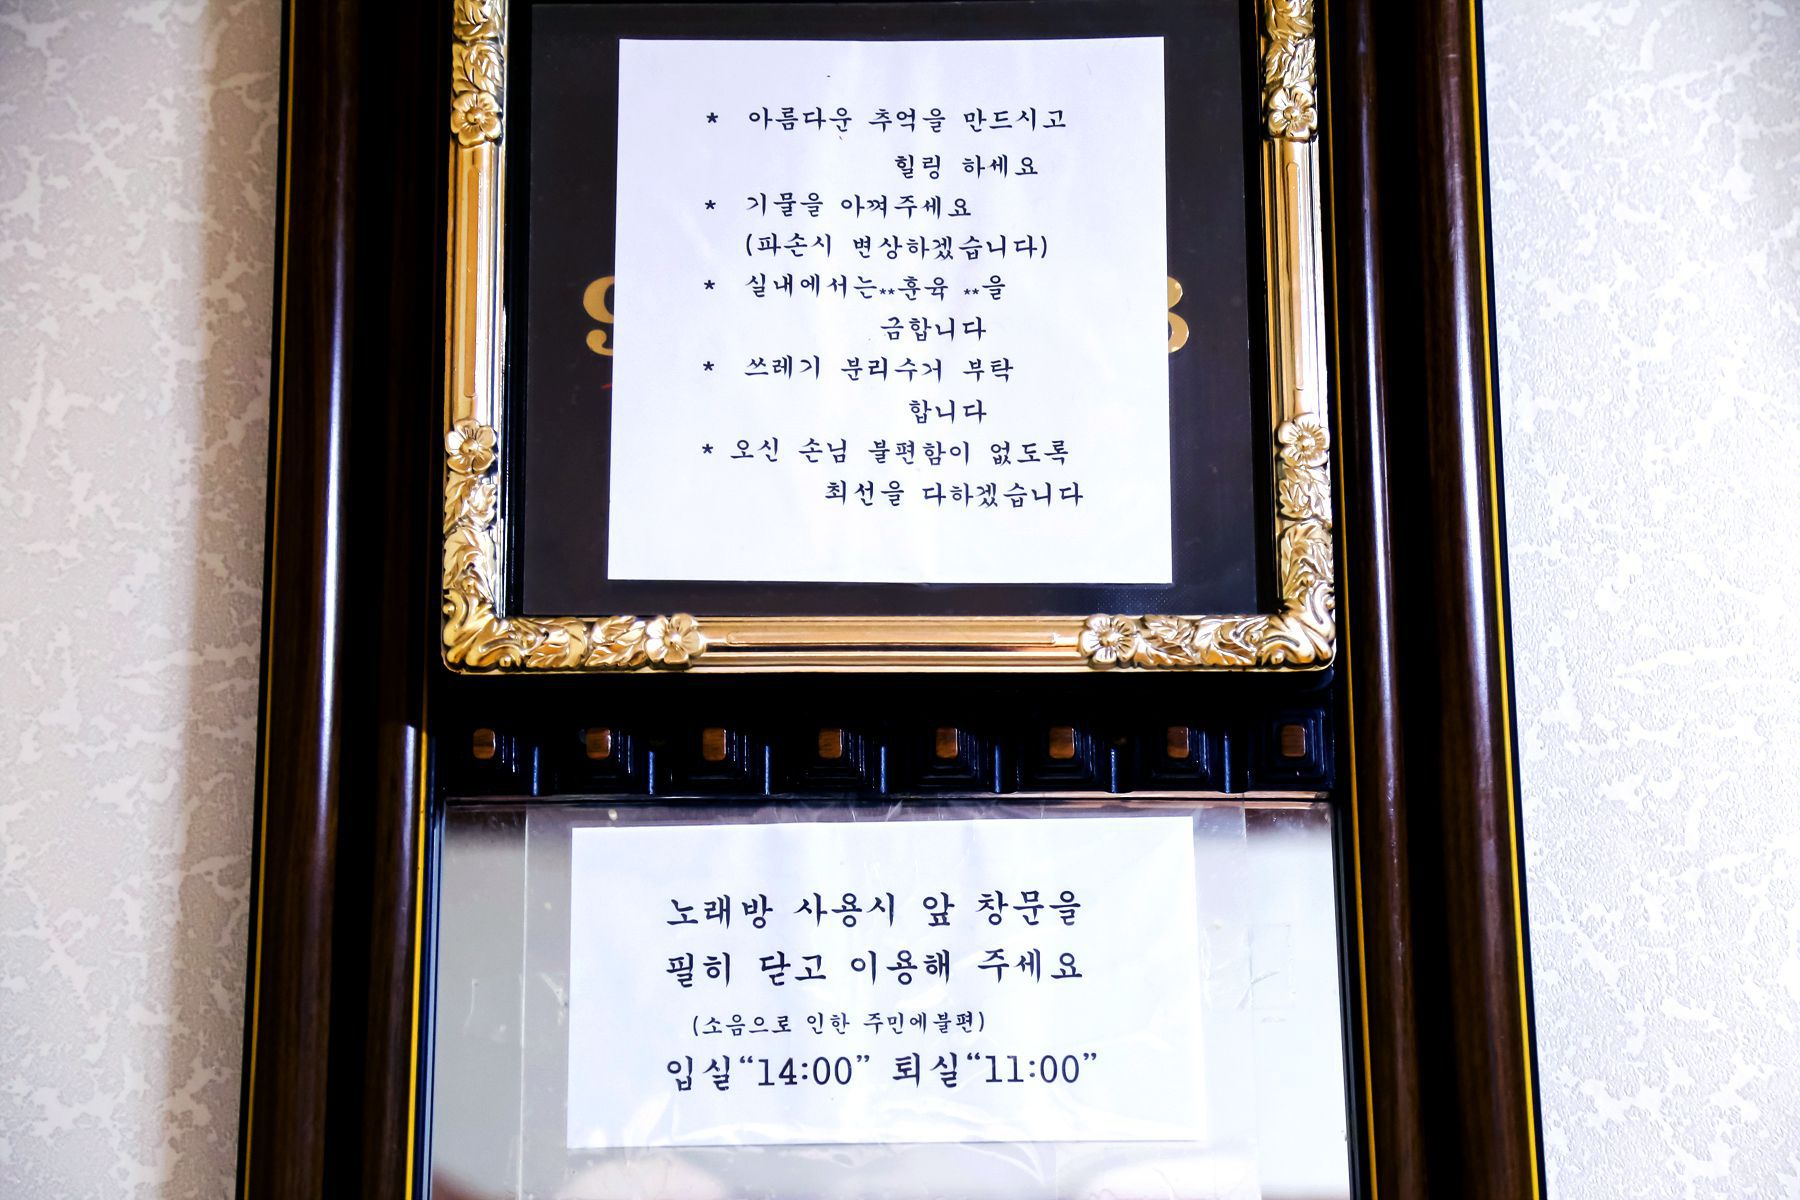 * 아름다운 추억을 만드시고
힐링 하세요
* 기물을 아껴주세요
(파손시 변상하겠습니다)
* 실내에서는**훈육 **을
금합니다
* 쓰레기 분리수거 부탁
합니다
* 오신 손님 불편함이 없도록
최선을 다하겠습니다
노래방 사용시 앞 창문을
필히 닫고 이용해 주세요
(소음으로 인한 주민에불편)
입실“14:00” 퇴실“11:00”